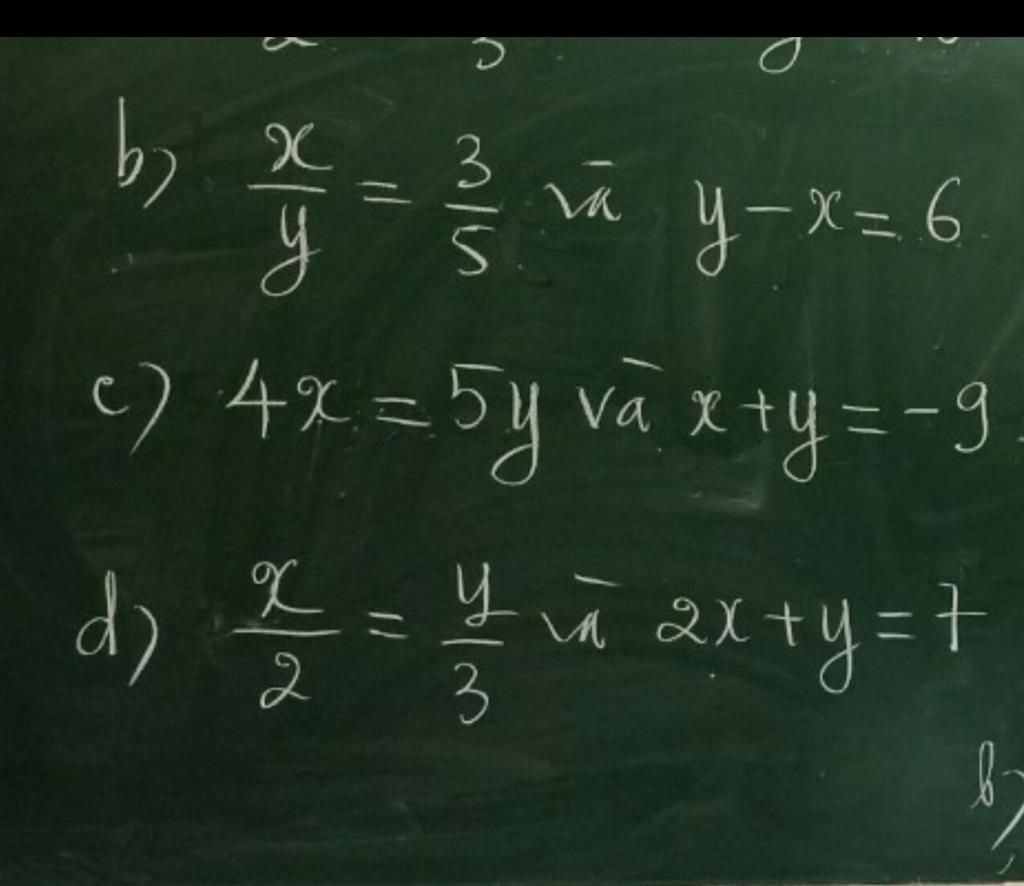 b) x/y = 3/5 và y - x = 6
c) 4x = 5y và x + y = -9
d) x/2 = y/3 và 2x + y = 7
b)